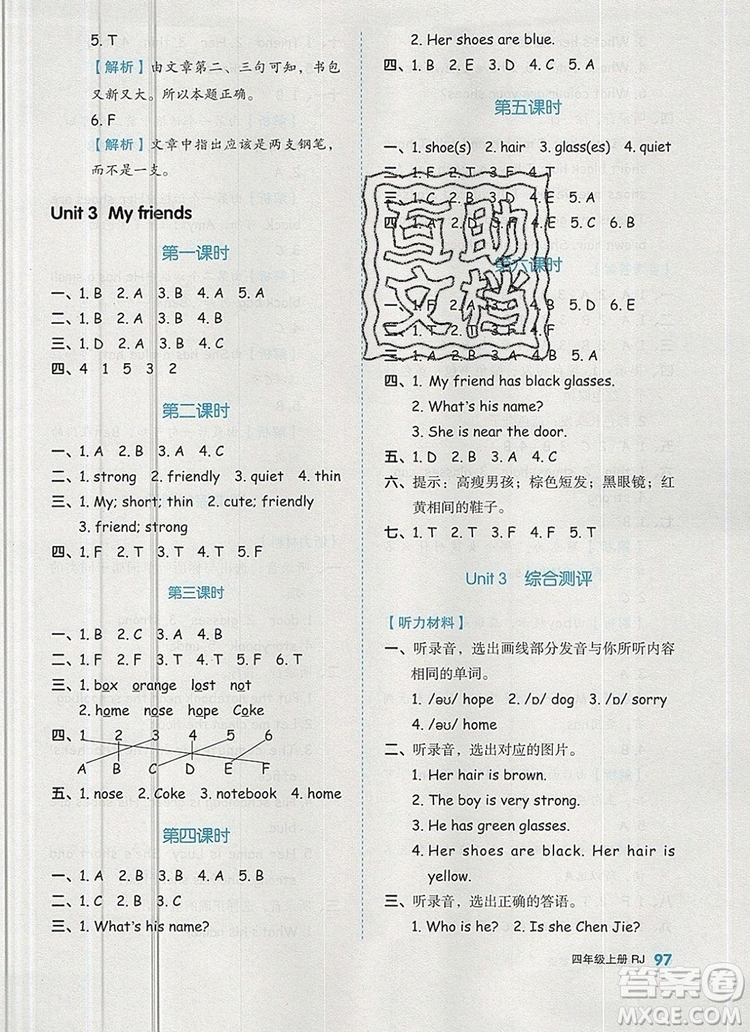 5. T
【解析】由文章第二、三句可知，书包
又新又大。所以本题正确。
6. F
【解析】文章中指出应该是两支钢笔，
而不是一支。
Unit 3 My friends
第一课时
一、1. B 2. A 3. B 4. A 5. A
二、1. B 2. A 3. A 4. B
三、1. D 2. A 3. B 4. C
四、4 1 5 3 2
第二课时
一、1. B 2. C 3. A 4. C
二、1. strong 2. friendly 3. quiet 4. thin
三、1. My; short; thin 2. cute; friendly
3. friend; strong
四、1. F 2. T 3. T 4. T 5. F
第三课时
一、1. B 2. C 3. A 4. B
二、1. T 2. F 3. T 4. F 5. F 6. T
三、1. box orange lost not
2. home nose hope Coke
四、1 2 3 4 5 6
A B C D E F
五、1. nose 2. Coke 3. notebook 4. home
第四课时
一、1. B 2. C 3. A 4. B 5. A
二、1. B 2. A 3. C 4. C
三、1. What's his name?
2. Her shoes are blue.
四、1. B 2. E 3. D 4. C 5. A
第五课时
一、1. shoe(s) 2. hair 3. glass(es) 4. quiet
二、1. F 2. T 3. F 4. T
三、1. B 2. C 3. B 4. C 5. A
四、1. A 2. D 5. C 6. B
第六课时
一、1. C 2. A 3. B 4. B 5. D 6. E
二、1. T 2. T 4. F
三、1. A 2. B 3. B 4. B 5. A
四、1. My friend has black glasses.
2. What's his name?
3. She is near the door.
五、1. D 2. C 3. A 4. B
六、提示：高瘦男孩；棕色短发；黑眼镜；红
黄相间的鞋子。
七、1. F 2. F 3. T 4. F 5. T
Unit 3 综合测评
【听力材料】
一、听录音，选出画线部分发音与你所听内容
相同的单词。
1. /əʊ/ hope 2. /ɒ/ dog 3. /ɒ/ sorry
4. /əʊ/ home
二、听录音，选出对应的图片。
1. Her hair is brown.
2. The boy is very strong.
3. He has green glasses.
4. Her shoes are black. Her hair is
yellow.
三、听录音，选出正确的答语。
1. Who is he? 2. Is she Chen Jie?
四年级上册 RJ 97
互助
文档
答案圈
MXQE.COM